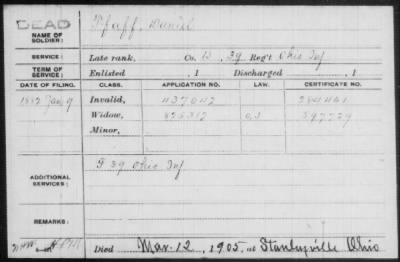 DEAD
NAME OF SOLDIER:
Pfaff, Daniel
SERVICE:
Late rank, Co. B, 39 Reg't Ohio Inf
TERM OF SERVICE:
Enlisted , 1 Discharged , 1
DATE OF FILING. CLASS. APPLICATION NO. LAW. CERTIFICATE NO.
1882 Jan 9 Invalid, 437042
Widow,
Minor,
ADDITIONAL SERVICES:
F 39 Ohio Inf
REMARKS:
Died Mar. 12, 1905, at Stanleyville Ohio